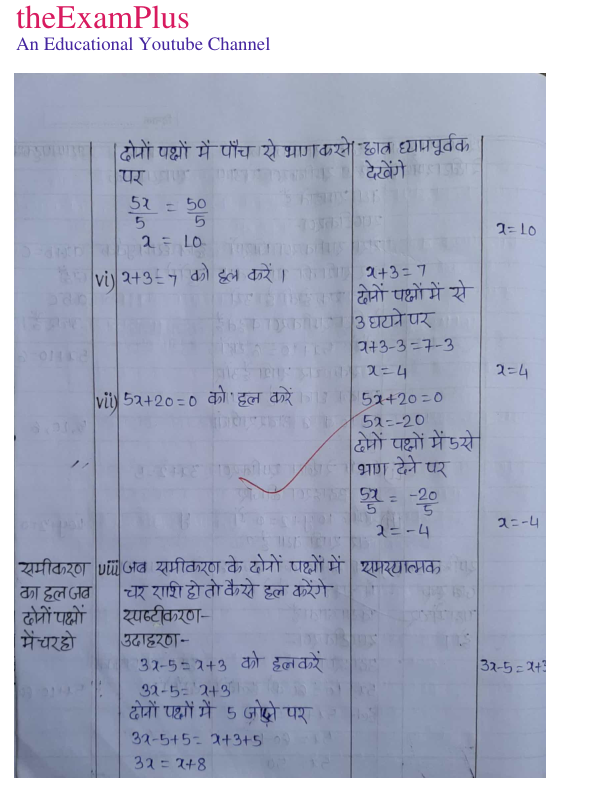 theExamPlus
An Educational Youtube Channel
दोनों पक्षों में पाँच से भाग करने
पर
5x/5 = 50/5
x = 10
छात्र ध्यानपूर्वक
देखेंगे
x=10
vi) x+3=7 को हल करें।
x+3=7
दोनों पक्षों में से
3 घटाने पर
x+3-3=7-3
x=4
x=4
vii) 5x+20=0 को हल करें
5x+20=0
5x=-20
दोनों पक्षों में 5 से
भाग देने पर
5x/5 = -20/5
x=-4
x=-4
समीकरण
का हल जब
दोनों पक्षों
में चर हो
viii जब समीकरण के दोनों पक्षों में
चर राशि हो तो कैसे हल करेंगे
स्पष्टीकरण-
उदाहरण-
3x-5=x+3 को हल करें
3x-5=x+3
दोनों पक्षों में 5 जोड़ने पर
3x-5+5=x+3+5
3x=x+8
समस्यात्मक
3x-5=x+3